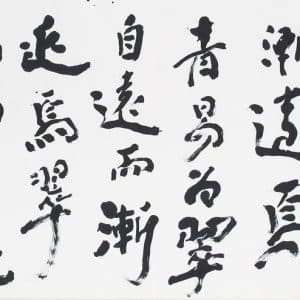 漸遠焉
青易為翠
自遠而漸
近焉翠